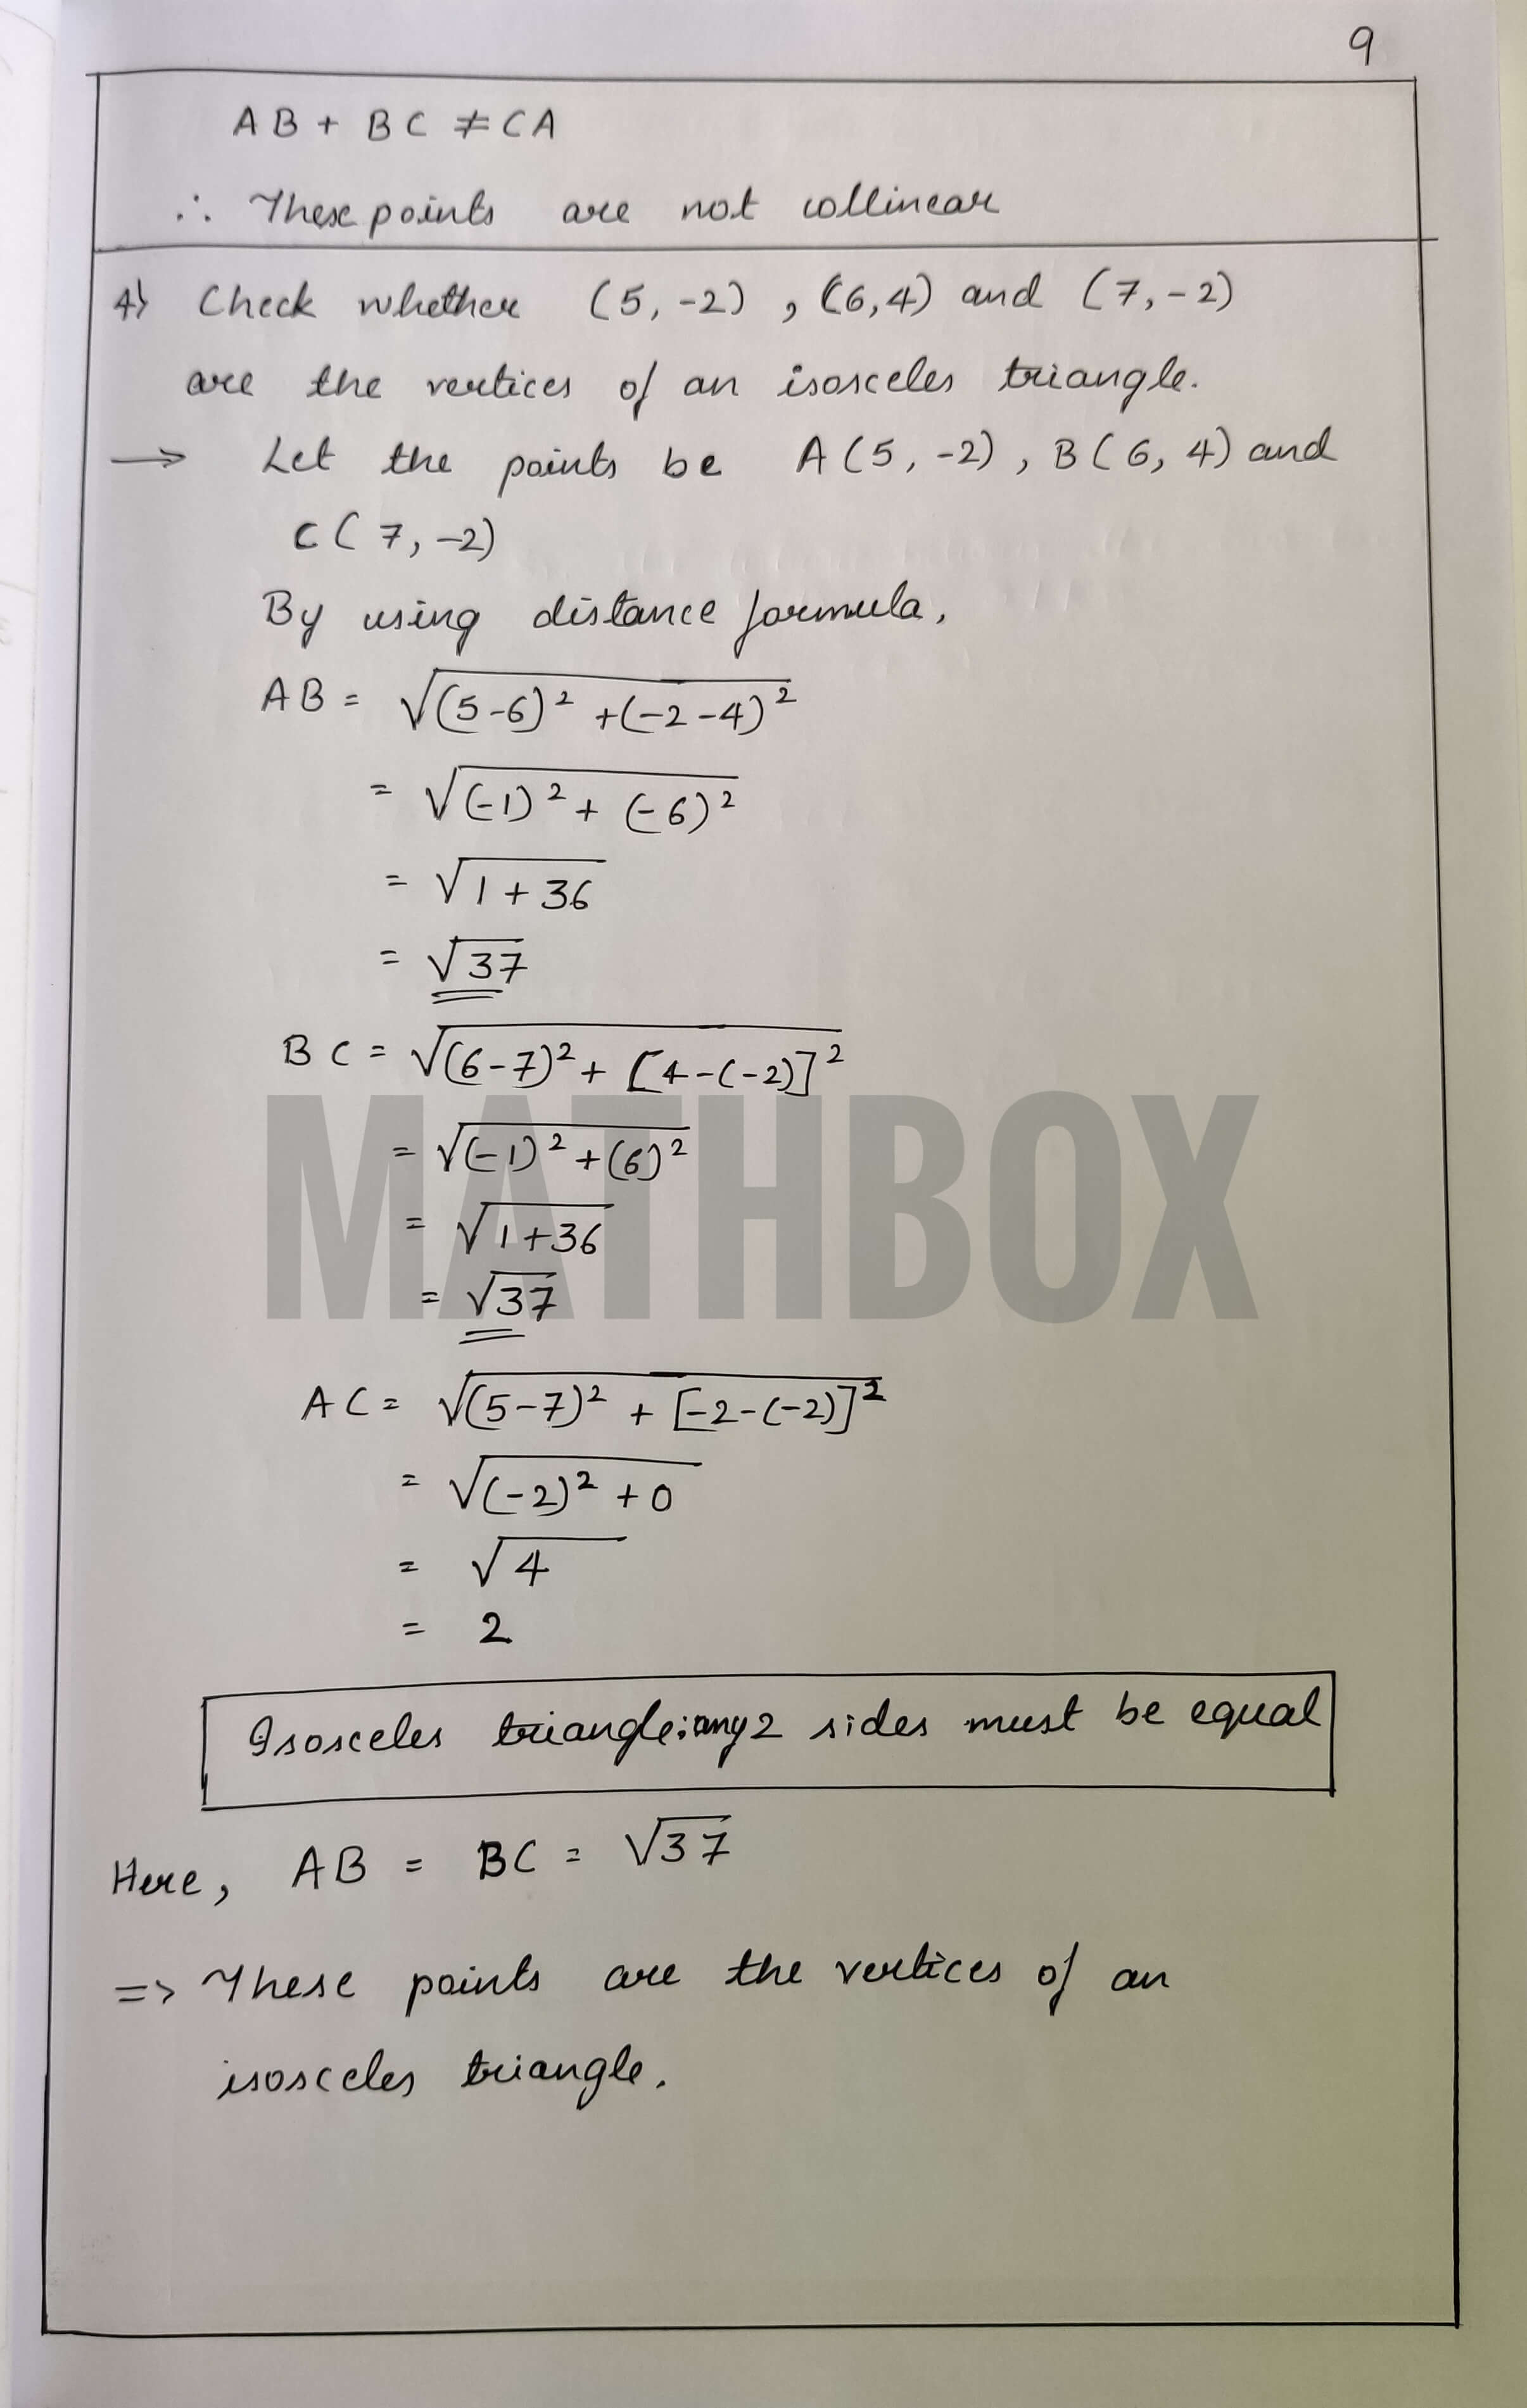 9
AB + BC ≠ CA
∴ These points are not collinear
4) Check whether (5, -2) , (6,4) and (7, -2)
are the vertices of an isosceles triangle.
→ Let the points be A(5, -2), B(6, 4) and
C(7, -2)
By using distance formula,
AB = √(5-6)² +(-2-4)²
= √(-1)² + (-6)²
= √1 + 36
= √37
BC = √(6-7)² + [4-(-2)]²
= √(-1)² + (6)²
= √1+36
= √37
AC = √(5-7)² + [-2-(-2)]²
= √(-2)² + 0
= √4
= 2
MATHBOX
Isosceles triangle: any 2 sides must be equal
Here, AB = BC = √37
=> These points are the vertices of an
isosceles triangle.